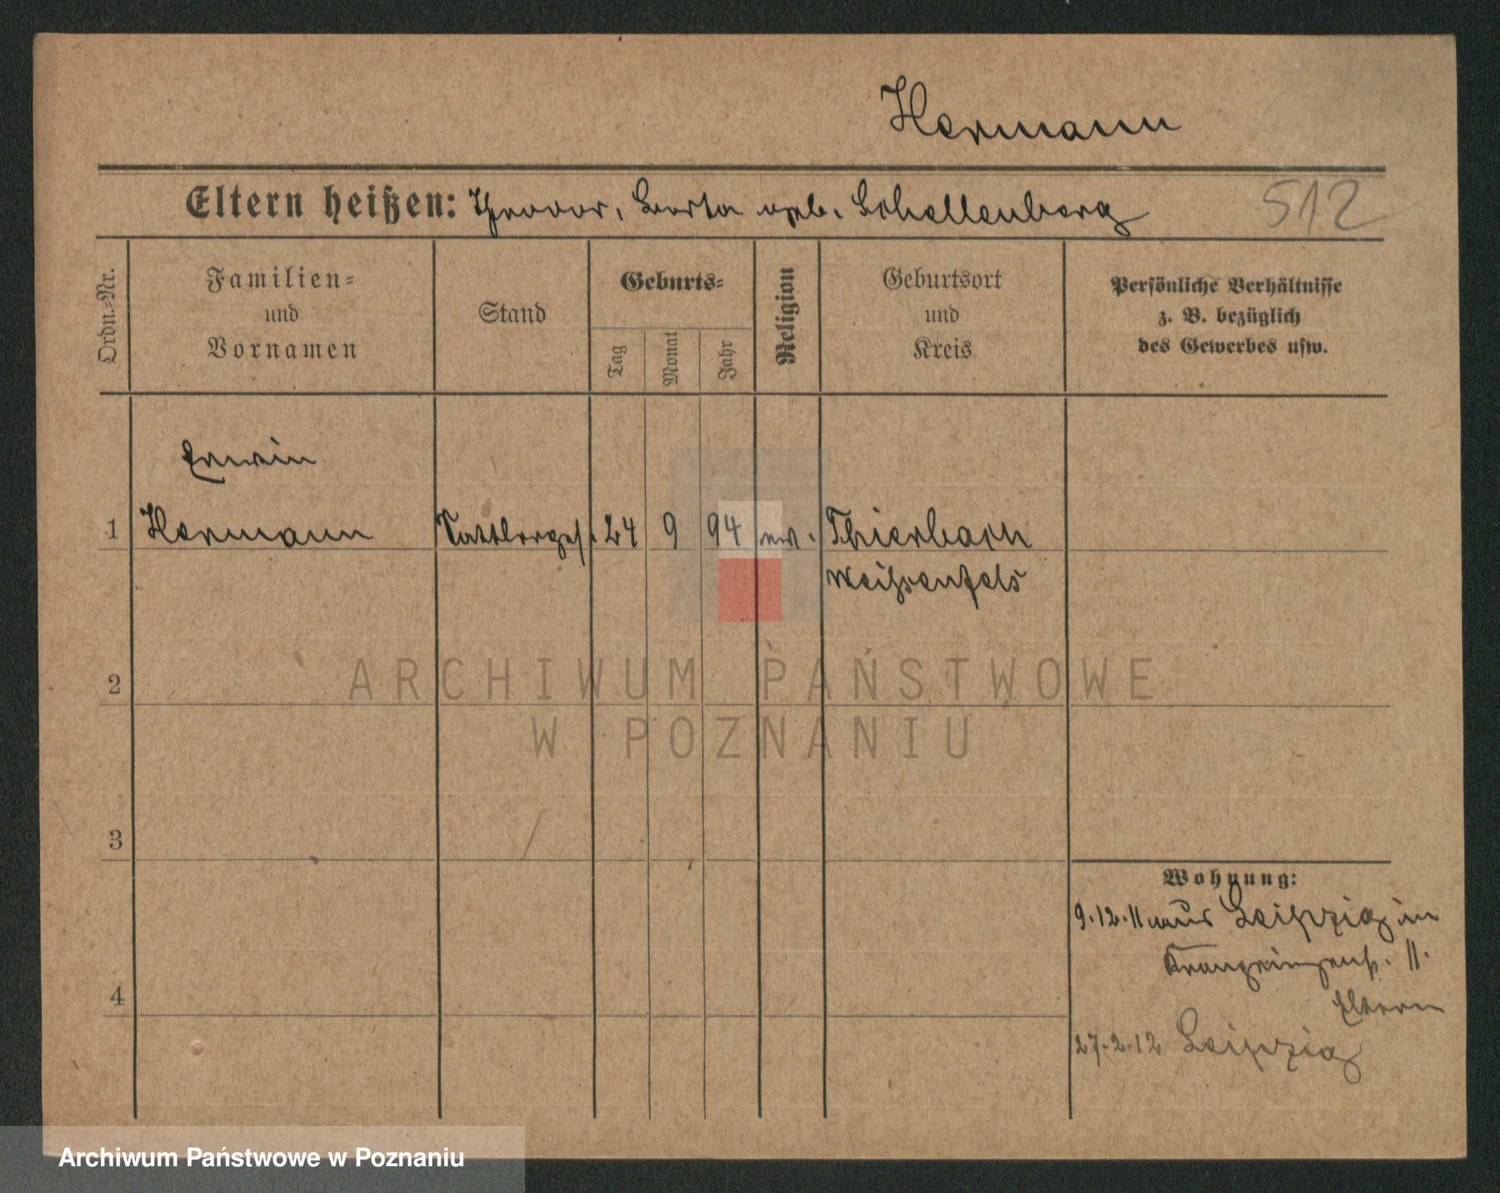 Hermann
Eltern heißen: Theodor, Berta geb. Schellenberg
512
Ordn.-Nr.
Familien-
und
Vornamen
Stand
Geburts-
Tag
Monat
Jahr
Religion
Geburtsort
und
Kreis
Persönliche Verhältnisse
z. B. bezüglich
des Gewerbes usw.
Erwin
1 Hermann Sattlerges. 24 9 94 ev. Thierbach
Weißenfels
2
3
4
Wohnung:
9.12.11 aus Leipzig in
11.
Eltern
27.2.12 Leipzig
ARCHIWUM PAŃSTWOWE
W POZNANIU
Archiwum Państwowe w Poznaniu